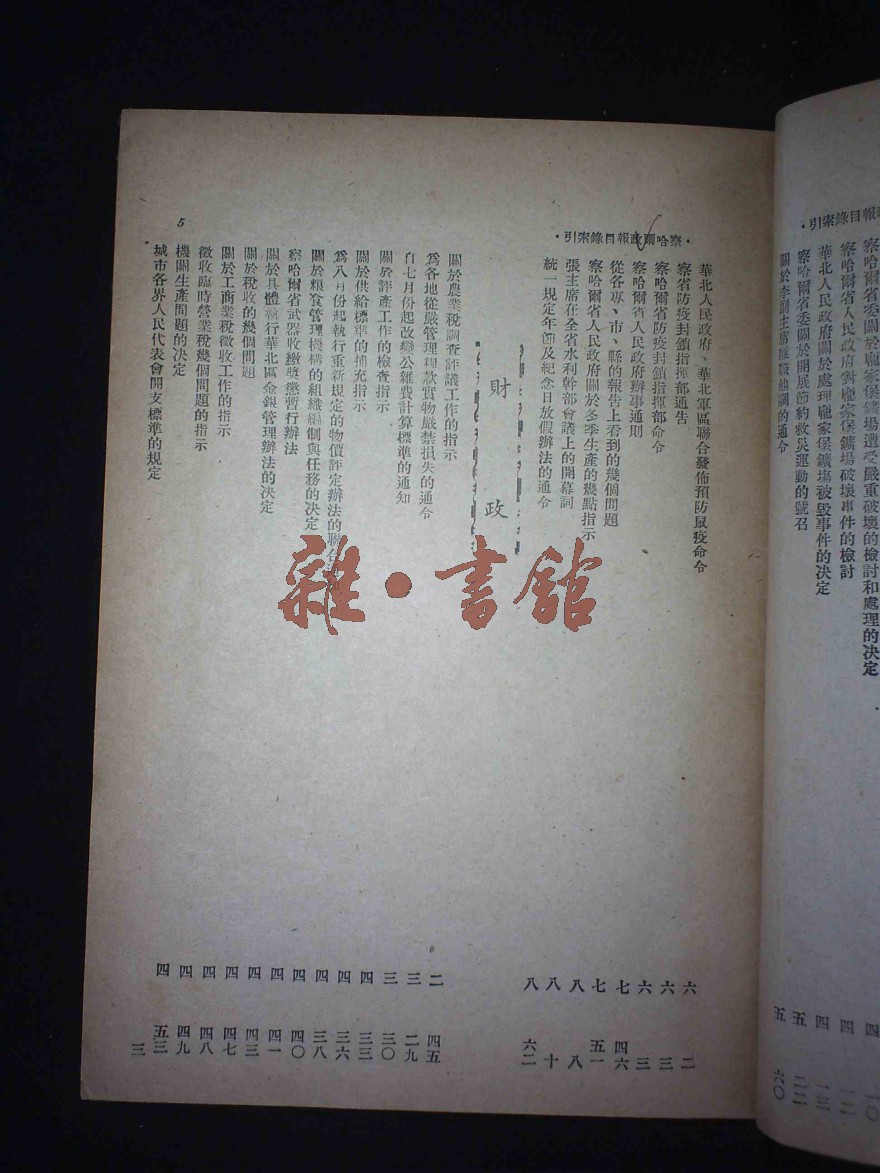 察哈爾省委關於龐家堡鑛場遭受嚴重破壞的檢討和處理的决定
察哈爾省人民政府對龐家堡鑛場破壞事件的檢討
華北人民政府關於處理龐家堡鑛塲被毀事件的决定
察哈爾省委關於開展節約救災運動的號召
關於李副主席的通令
四 一〇
四 一二
四 一三
五 二二
五 六〇
·察哈爾政報目錄索引·
華北人民政府、華北軍區聯合發佈預防鼠疫命令
察省防疫封鎖指揮部通告
察哈爾省防疫封鎖指揮部命令
察哈爾省人民政府辦事通則
從各專、市、縣的報告上看到的幾個問題
察哈爾省人民政府關於冬季生產的幾點指示
張主席在全省水利幹部會議上的開幕詞
統一規定年節及紀念日放假辦法的通令
六 二
六 三
六 三
七 四六
七 五一
八 八
八 十
八 六二
財 政
關於農業稅調查評議工作的指示
爲各地從嚴管理現款實物嚴禁損失的通令
自七月份起改變公雜費計算標準的通知
關於評產工作的檢查指示
關於供給標準的補充指示
爲八月份起執行重新規定的物價評定辦法的聯合通知
關於粮食管理機構的組織編制與任務的决定
察哈爾省武器收繳獎懲暫行辦法
關於具體執行華北區金銀管理辦法的决定
關於稅收的幾個問題
關於工商業稅徵收工作的指示
徵收臨時營業稅幾個問題的指示
機關生產問題的决定
城市各界人民代表會開支標準的規定
二 四五
三 二九
三 三〇
四 三三
四 三六
四 三八
四 四〇
四 四一
四 四三
四 四七
四 四八
四 四九
四 五三
5
三
雜·書館